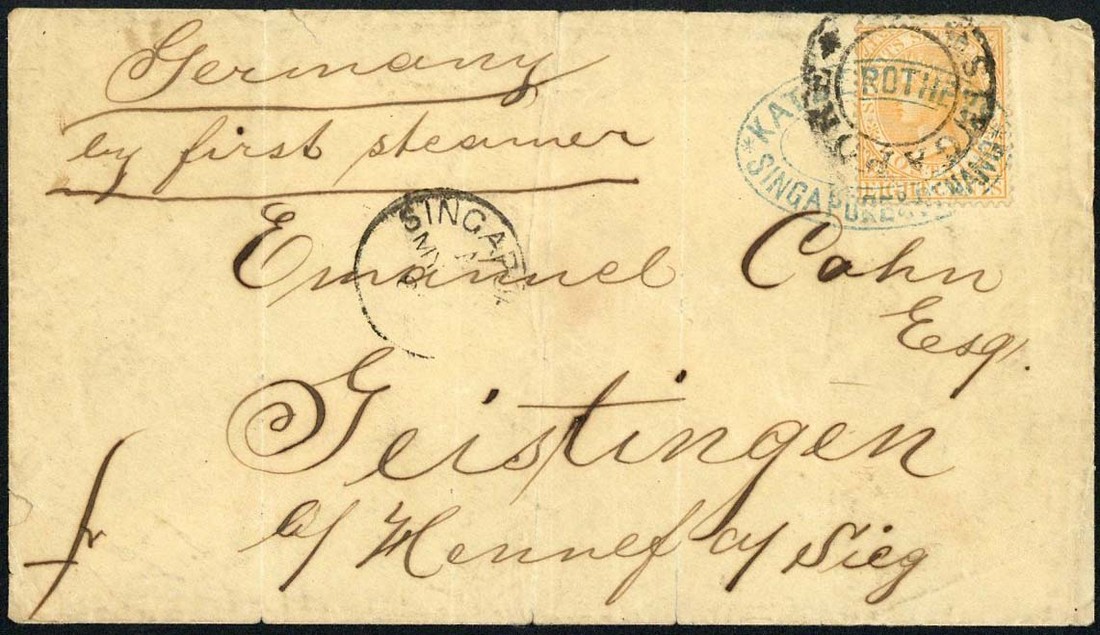 Germany
by first steamer
SINGAPORE
KAT ROTHE
SINGAPORE
SINGAPORE
Emanuel Cohn
Esq.
Geistingen
b/ Hennef a/ Sieg
fr